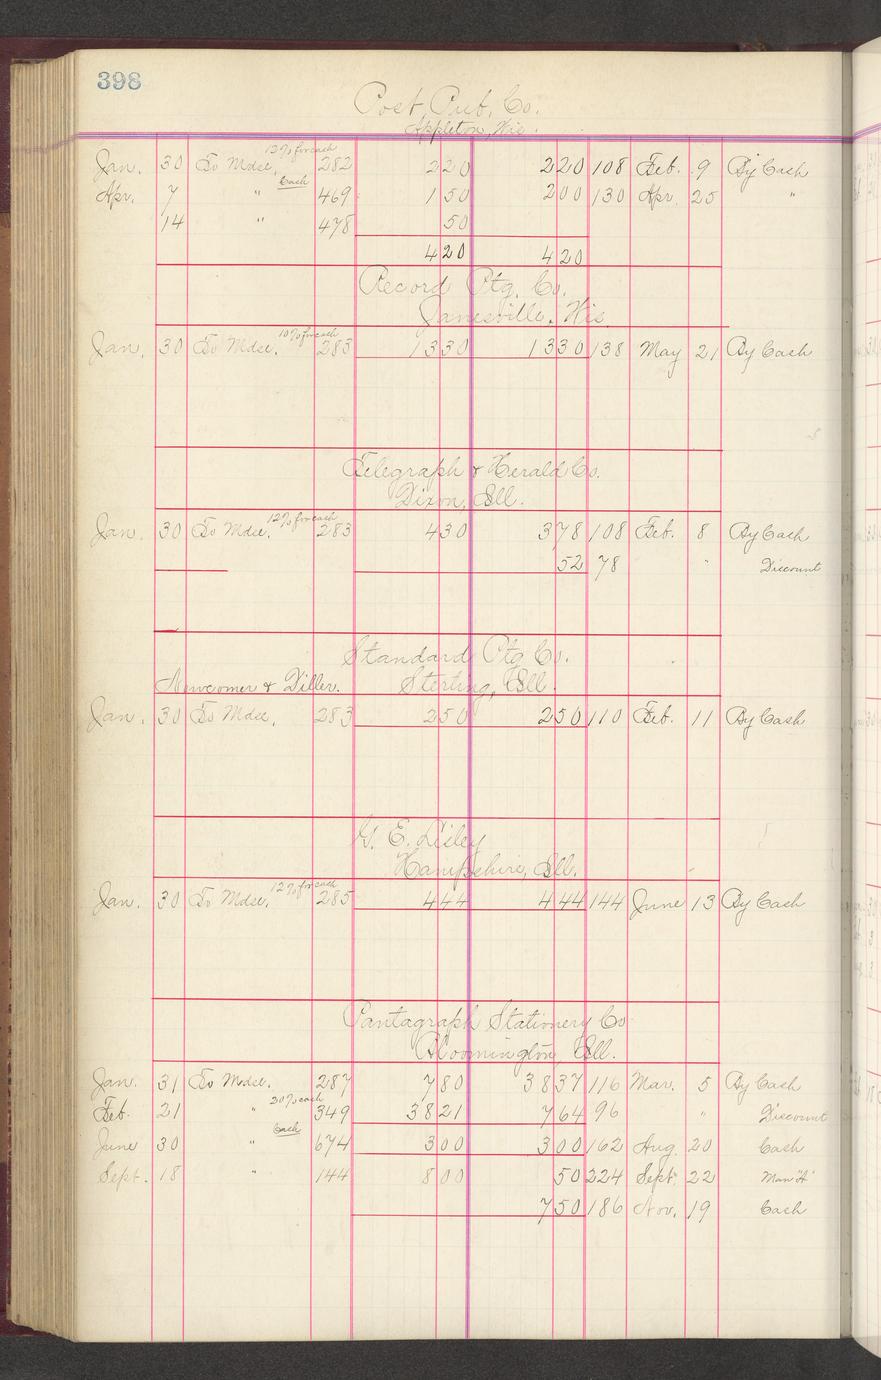 398
Post Pub. Co.
Appleton, Wis.
12% for cash
Jan. 30 To Mdse. 282 2 20 2 20 108 Feb. 9 By Cash
Cash
Apr. 7 " 469 1 50 2 00 130 Apr. 25 "
14 " 478 50
4 20 4 20
Record Ptg. Co.
Janesville, Wis.
10% for cash
Jan. 30 To Mdse. 283 13 30 13 30 138 May 21 By Cash
Telegraph & Herald Co.
Dixon, Ill.
12% for cash
Jan. 30 To Mdse. 283 4 30 3 78 108 Feb. 8 By Cash
52 78 " Discount
Standard Ptg Co.
Newcomer & Diller. Sterling, Ill.
Jan. 30 To Mdse. 283 2 50 2 50 110 Feb. 11 By Cash
G. E. Sisley
Hampshire, Ill.
12% for cash
Jan. 30 To Mdse. 285 4 44 4 44 144 June 13 By Cash
Pantagraph Stationery Co
Bloomington, Ill.
Jan. 31 To Mdse. 287 7 80 38 37 116 Mar. 5 By Cash
20% cash
Feb. 21 " 349 38 21 7 64 96 " Discount
Cash
June 30 " 674 3 00 3 00 162 Aug. 20 Cash
Sept. 18 " 144 8 00 50 224 Sept. 22 Man "A"
7 50 186 Nov. 19 Cash